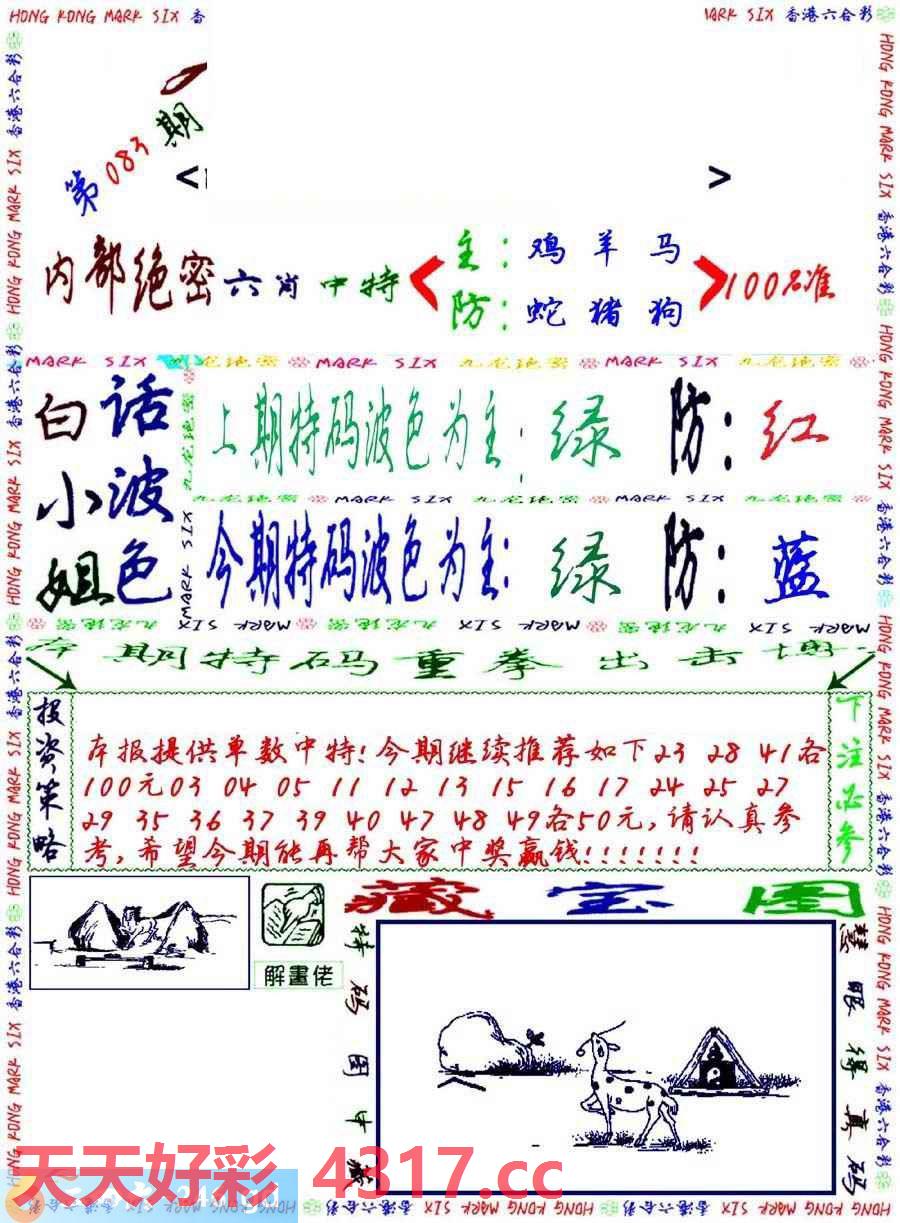 HONG KONG MARK SIX 香
MARK SIX 香港六合彩
第083期
< >
内部绝密 六肖 中特
主：鸡 羊 马
防：蛇 猪 狗
100%准
MARK SIX 九龙绝密 MARK SIX 九龙绝密 MARK SIX 九龙绝密
白话
小波
姐色
上期特码波色为主：绿 防：红
九龙绝密 MARK SIX 九龙绝密 MARK SIX
今期特码波色为主：绿 防：蓝
九龙绝密 MARK SIX 九龙绝密 MARK SIX 九龙绝密 MARK SIX
本期特码重拳出击
投资策略
本报提供单数中特!今期继续推荐如下23 28 41各
100元03 04 05 11 12 13 15 16 17 24 25 27
29 35 36 37 39 40 47 48 49各50元,请认真参
考,希望今期能再帮大家中奖赢钱!!!!!!!
下注必参
解畫佬
藏宝图
特码图中藏
慧眼得真码
天天好彩 4317.cc
HONG KONG MARK SIX 香港六合彩